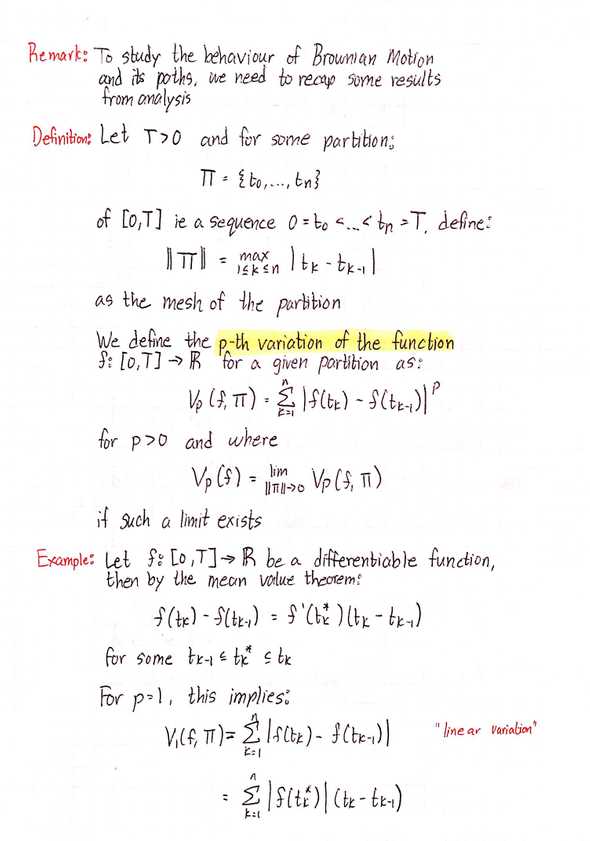 Remark: To study the behaviour of Brownian Motion
and its paths, we need to recap some results
from analysis
Definition: Let T>0 and for some partition:
Π = {t₀,..., tₙ}
of [0,T] ie a sequence 0=t₀ <...< tₙ =T, define:
‖Π‖ = max_{1≤k≤n} |tₖ - tₖ₋₁|
as the mesh of the partition
We define the p-th variation of the function
f: [0,T] → ℝ for a given partition as:
Vₚ(f, Π) = Σ_{k=1}^{n} |f(tₖ) - f(tₖ₋₁)|^p
for p>0 and where
Vₚ(f) = lim_{‖Π‖→0} Vₚ(f, Π)
if such a limit exists
Example: Let f: [0,T] → ℝ be a differentiable function,
then by the mean value theorem:
f(tₖ) - f(tₖ₋₁) = f'(tₖ*)(tₖ - tₖ₋₁)
for some tₖ₋₁ ≤ tₖ* ≤ tₖ
For p=1, this implies:
V₁(f, Π) = Σ_{k=1}^{n} |f(tₖ) - f(tₖ₋₁)| "linear variation"
= Σ_{k=1}^{n} |f(tₖ*)| (tₖ - tₖ₋₁)